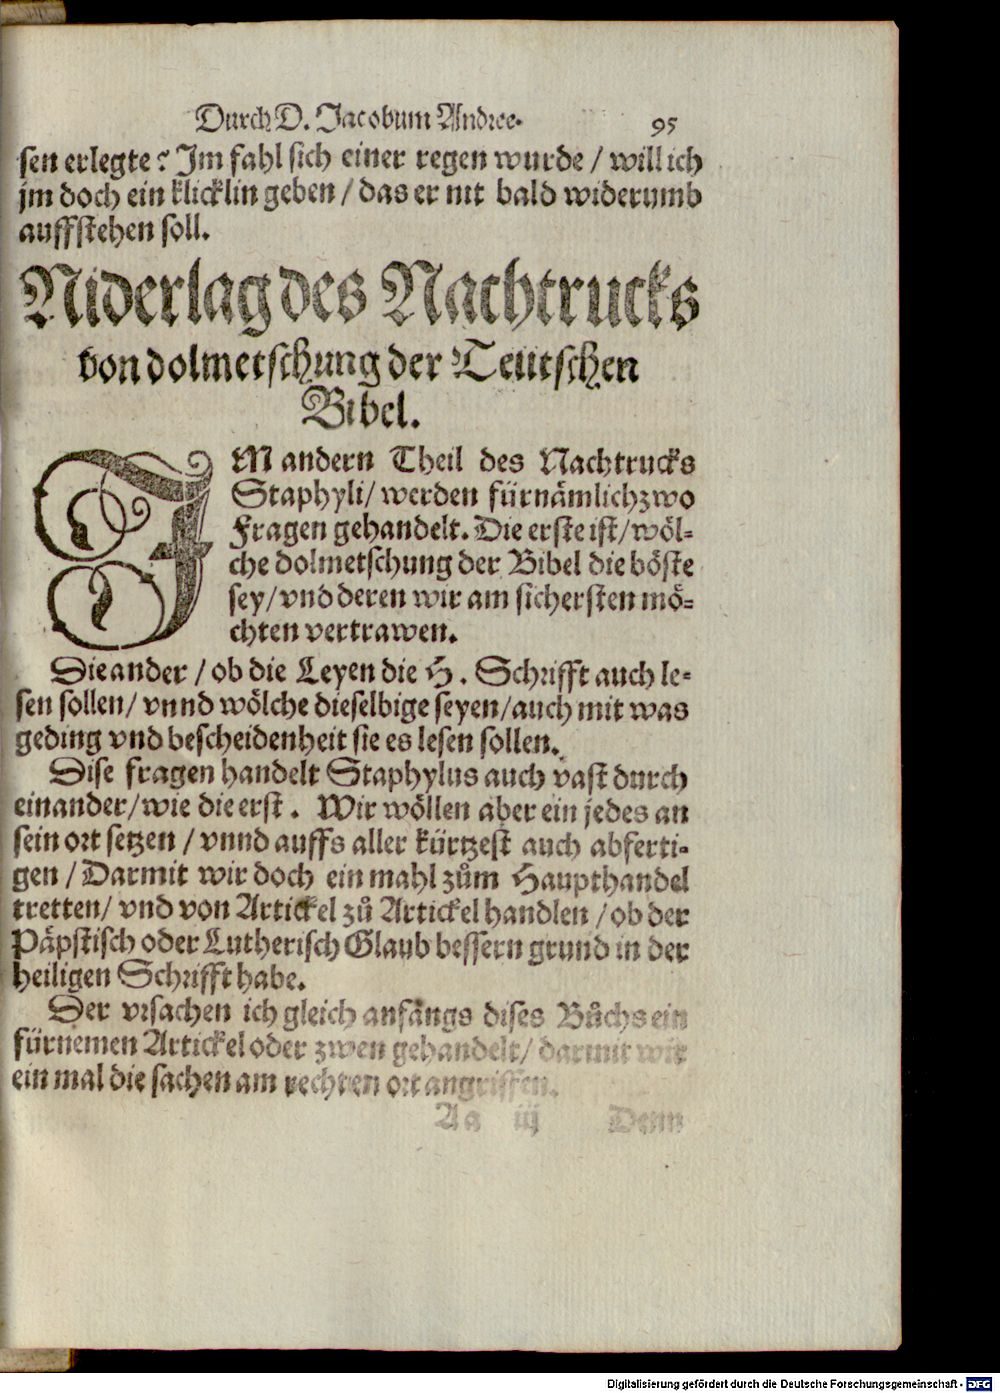 Durch D. Jacobum Andree. 95
sen erlegte? Im fahl sich einer regen wurde / will ich
jm doch ein klicklin geben / das er nit bald widerumb
auffstehen soll.
Niderlag des Nachtrucks
von dolmetschung der Teutschen
Bibel.
IM andern Theil des Nachtrucks
Staphyli/ werden fürnämlich zwo
Fragen gehandelt. Die erste ist/ wöl⸗
che dolmetschung der Bibel die böste
sey/ vnd deren wir am sichersten mö⸗
chten vertrawen.
Die ander / ob die Leyen die H. Schrifft auch le⸗
sen sollen/ vnnd wölche dieselbige seyen/ auch mit was
geding vnd bescheidenheit sie es lesen sollen.
Dise fragen handelt Staphylus auch vast durch
einander/ wie die erst. Wir wöllen aber ein jedes an
sein ort setzen / vnnd auffs aller kürtzest auch abferti⸗
gen / Darmit wir doch ein mahl zům Haupthandel
tretten/ vnd von Artickel zů Artickel handlen / ob der
Päpstisch oder Lutherisch Glaub bessern grund in der
heiligen Schrifft habe.
Der vrsachen ich gleich anfangs dises Bůchs ein
fürnemen Artickel oder zwen gehandelt/ darmit wir
ein mal die sachen am rechten ort angriffen.
Aa iij Denn
Digitalisierung gefördert durch die Deutsche Forschungsgemeinschaft - DFG